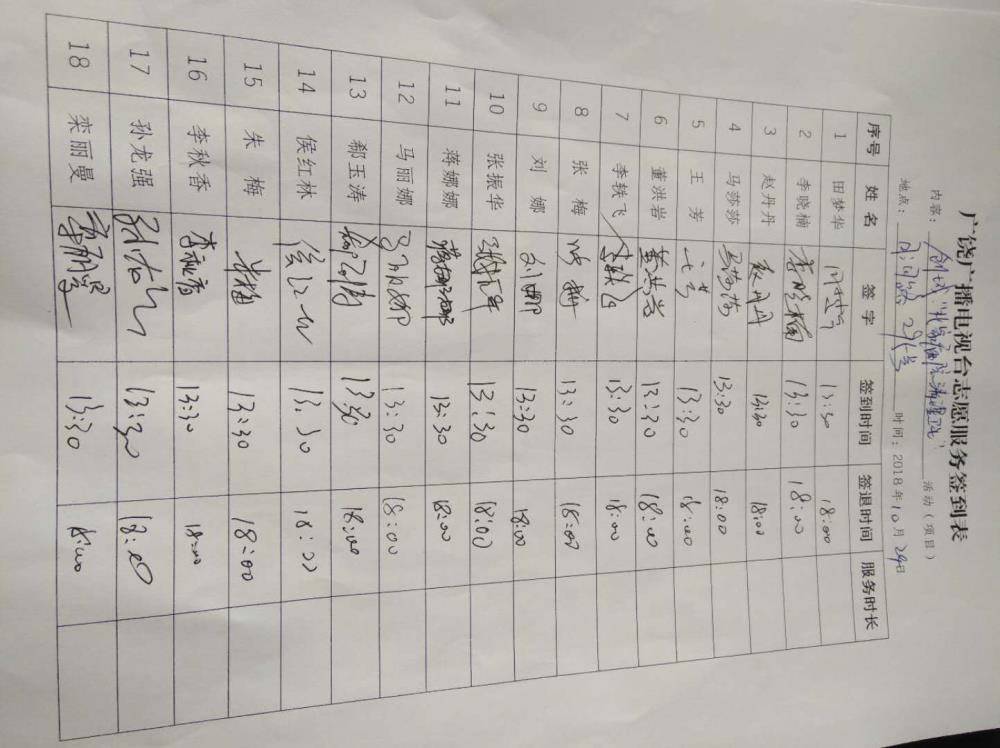 广饶广播电视台志愿服务签到表
内容： 创城 清理卫生 活动（项目）
地点： 时间：2018年10月29日
序号 姓名 签字 签到时间 签退时间 服务时长
1 田梦华 田梦华 13:30 18:00
2 李晓楠 李晓楠 13:30 18:00
3 赵丹丹 赵丹丹 13:30 18:00
4 马莎莎 马莎莎 13:30 18:00
5 王芳 王芳 13:30 18:00
6 董洪岩 董洪岩 13:30 18:00
7 李轶飞 李轶飞 13:30 18:00
8 张梅 张梅 13:30 18:00
9 刘娜 刘娜 13:30 18:00
10 张振华 张振华 13:30 18:00
11 蒋娜娜 蒋娜娜 13:30 18:00
12 马丽娜 马丽娜 13:30 18:00
13 郗玉涛 郗玉涛 13:30 18:00
14 侯红林 侯红林 13:30 18:00
15 朱梅 朱梅 13:30 18:00
16 李秋香 李秋香 13:30 18:00
17 孙龙强 13:30 18:00
18 栾丽曼 栾丽曼 13:30 18:00